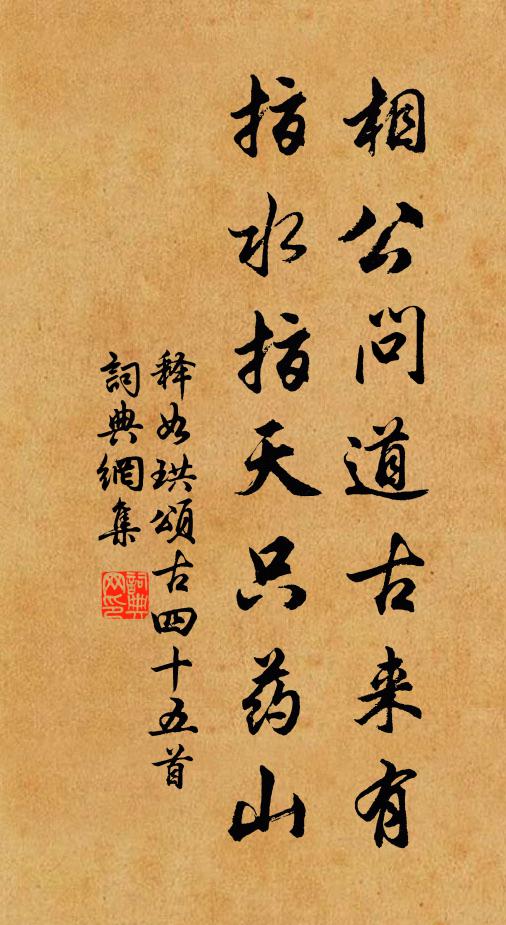 相公问道古来有
指水指天只药山
释如珙頌古四十五首
詞典網集
詞典网印